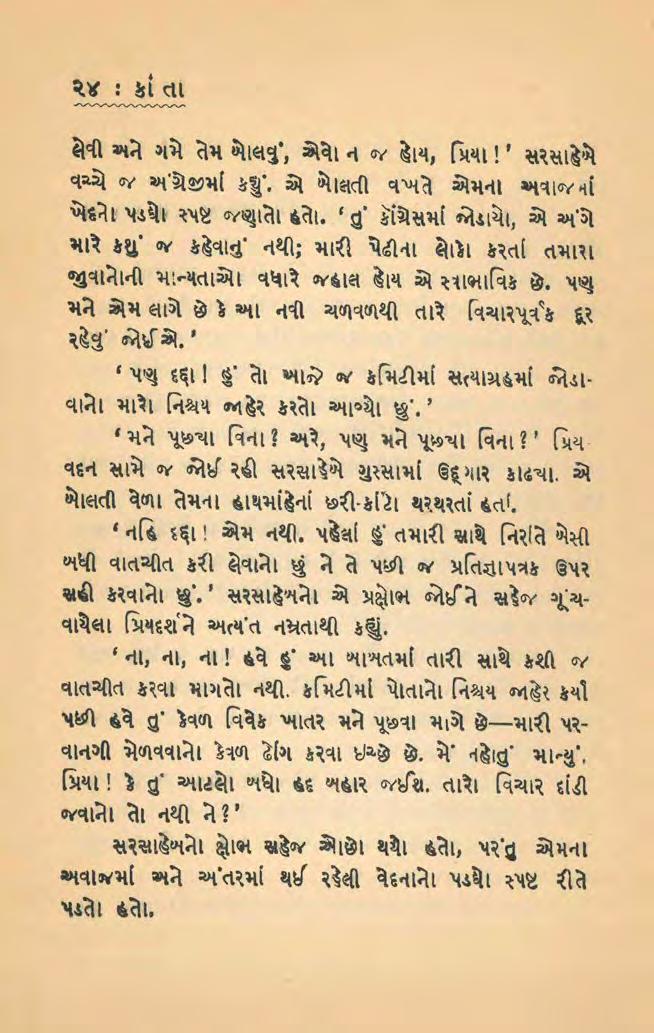 ૨૪ : કાંતા
લેવી અને ગમે તેમ બોલવું, એવો ન જ હોય, પ્રિયા !’ સરસાહેબે
વચ્ચે જ અંગ્રેજીમાં કહ્યું. એ બોલતી વખતે એમના અવાજમાં
ખેદનો પડઘો સ્પષ્ટ જણાતો હતો. ‘તું કૉંગ્રેસમાં જોડાયો, એ અંગે
મારે કશું જ કહેવાનું નથી; મારી પેઢીના લોકો કરતાં તમારા
જુવાનોની માન્યતાઓ વધારે જહાલ હોય એ સ્વાભાવિક છે. પણ
મને એમ લાગે છે કે આ નવી ચળવળથી તારે વિચારપૂર્વક દૂર
રહેવું જોઈએ.’
‘પણ દદ્દા ! હું તો આજે જ કમિટીમાં સત્યાગ્રહમાં જોડા-
વાનો મારો નિશ્ચય જાહેર કરતો આવ્યો છું.’
‘મને પૂછ્યા વિના ? અરે, પણ મને પૂછ્યા વિના ?’ પ્રિય-
વદન સામે જ જોઈ રહી સરસાહેબે ગુસ્સામાં ઉદ્ગાર કાઢ્યા. એ
બોલતી વેળા તેમના હાથમાંહેનાં છરી-કાંટો થરથરતાં હતાં.
‘નહિ દદ્દા ! એમ નથી. પહેલાં હું તમારી સાથે નિરાંતે બેસી
બધી વાતચીત કરી લેવાનો છું ને તે પછી જ પ્રતિજ્ઞાપત્રક ઉપર
સહી કરવાનો છું.’ સરસાહેબનો એ પ્રક્ષોભ જોઈને સહેજ ગૂંચ-
વાયેલા પ્રિયદર્શને અત્યંત નમ્રતાથી કહ્યું.
‘ના, ના, ના ! હવે હું આ બાબતમાં તારી સાથે કશી જ
વાતચીત કરવા માગતો નથી. કમિટીમાં પોતાનો નિશ્ચય જાહેર કર્યા
પછી હવે તું કેવળ વિવેક ખાતર મને પૂછવા માગે છે—મારી પર-
વાનગી મેળવવાનો કેવળ ઢોંગ કરવા ઇચ્છે છે. મેં નહોતું માન્યું,
પ્રિયા ! કે તું આટલો બધો હદ બહાર જઈશ. તારો વિચાર દાંડી
જવાનો તો નથી ને ?’
સરસાહેબનો ક્ષોભ સહેજ ઓછો થયો હતો, પરંતુ એમના
અવાજમાં અને અંતરમાં થઈ રહેલી વેદનાનો પડઘો સ્પષ્ટ રીતે
પડતો હતો.